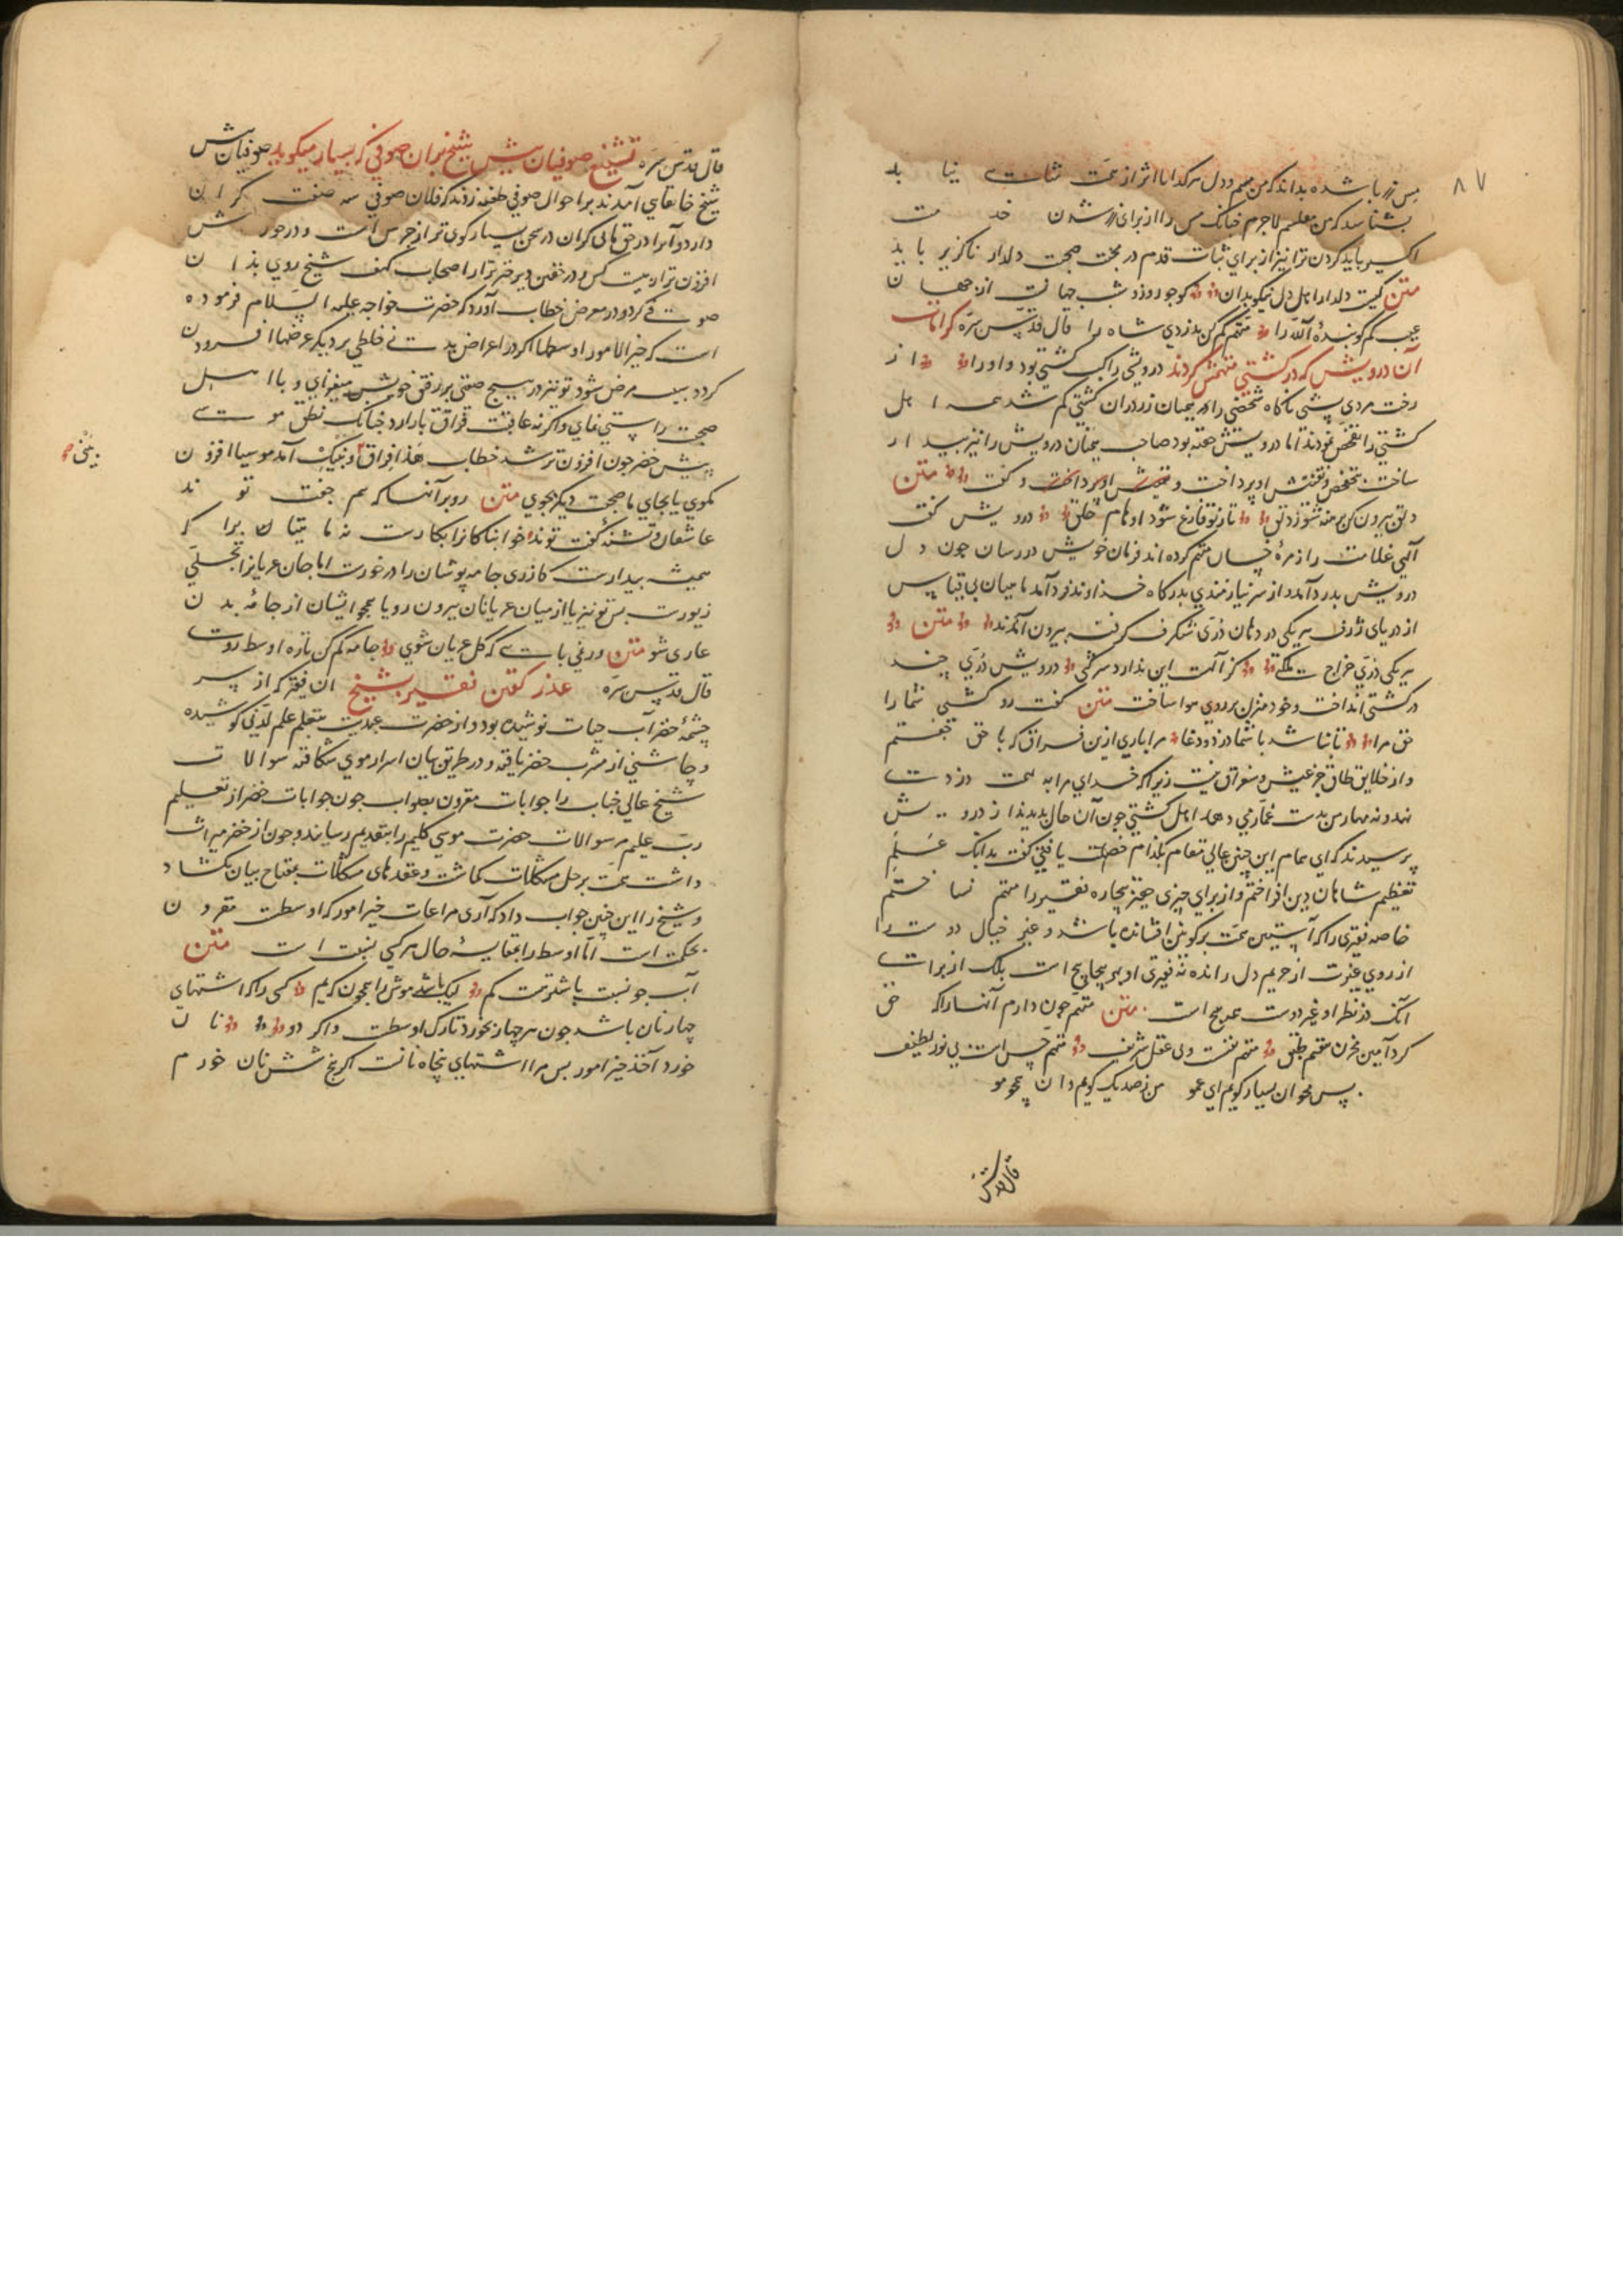 ۸۷
مس زر باشده بداند که من مسم و دل هر کدا را اثر از تمت
بشناسد که من معلم لاجرم چنانک مس را از برای زر شدن خدمت
اکسیر باید کردن ترا نیز از برای ثبات قدم در بحث صحبت دلدار ناگزیر باید
متن کیست دلدار اهل دل نیکو بدان کو چو روز و شب جهانت از جهان
عیب کم کو بندهٔ الله را متهم کم کن بدزدی شاه را قال قدس سره کرامات
آن درویش که در کشتی متهمش کردند درویشی راکب کشتی بود و او را از
رخت مردی پشتی ناکاه شخصی را همیان زر در ان کشتی کم شد همه اهل
کشتی را تفحص نمودند اما درویش خفته بود صاحب همیان درویش را نیز بیدار
ساخت بتفحص و تفتیش او پرداخت و گفت متن
دلق بیرون کن برهنه شو ز دلق تا ز تو فارغ شود اوهام خلق درویش گفت
الهی غلامت را زمرهٔ خسان متهم کرده اند فرمان خویش در رسان چون دل
درویش بدرد آمد و از سر نیازمندی بدرگاه خداوند فرد آمد ماهیان بی قیاس
از دریای ژرف هر یکی در دهان دری شگرف گرفته بیرون آمدند متن
هر یکی دری خراج ملکتی کز آلهست این ندارد شرکتی درویش دری چند
در کشتی انداخت و خود منزل بر روی هوا ساخت متن گفت رو کشتی شما را
حق مرا تا نباشد با شما دزد و دغا مرا باری ازین فراق که با حق جفتم
و از خلایق طاق جز عیش و سفراق نیست زیرا که خدای مرا به تهمت دزدی
نهد و نه مهار من بدست غمازی دهد اهل کشتی چون آن حال بدیدند از درویش
پرسیدند که ای همام این چنین عالی مقام بکدام خصلت یافتی گفت بدانک علم
تعظیم شاهان دین افراختم و از برای چیزی حقیر بیچاره فقیر را متهم نساختم
خاصه فقیری را که آستین همت بر کونین افشانده باشد و غیر خیال دوست را
از روی غیرت از حریم دل رانده نه فقیری او بهر پیچاپیچ است بلک از برای
آنک در نظر او غیر دوست همه هیچ است متن متهم چون دارم آنها را که حق
کرد امین مخزن هفتم طبق متهم نفست و نی عقل شریف متهم حس است نی نور لطیف
پس مخوان بسیار گویم ای عمو من ز صد یک گویم و آن همچو مو
قال قدس
قال قدس سره تشنیع صوفیان پیش شیخ بران صوفی که بسیار میگوید صوفیان پیش
شیخ خانقاهی آمدند بر احوال صوفی طعنه زدند که فلان صوفی سه صفت گران
دارد و آنرا در حق مالی کران در سخن بسیار گوی تر از جرس است و در خورش
افزون تر از بیست کس و در خفتن دیر خیزتر از اصحاب کهف شیخ روی بذان
صوفی کرد و در معرض خطاب آورد که حضرت خواجه علیه السلام فرموده
است که خیر الامور اوسطها اگر در اعراض بدن خلطی بر دیگر عرضها افزون
گردد سبب مرض شود تو نیز در هیچ صفتی بر رفیق خویش میفزای و با اهل
صحبت راستی نمای و اگر نه عاقبت فراق بار آرد چنانک نطق موسی
پیش خضر چون افزون تر شد خطاب هذا فراق بینی و بینک آمد موسیا افزون
بینی صح
مگوی یا بجای ما صحبت دیگر بجوی متن رو بر آنها که هم جفت تواند
عاشقان و تشنهٔ گفت تواند خوابناکانرا بکارست نه ماهیان را که
همیشه بیدارست کاذری جامه پوشان را در خورست اما جان عریانرا تجلی
زیورست پس تو نیز یا از میان عریانان بیرون رو یا همچو ایشان از جامهٔ بدن
عاری شو متن ور نمی بانی که کل عریان شوی جامه کم کن تا ره اوسط روی
قال قدس سره عذر گفتن فقیر بشیخ آن فقیر که از سر
چشمهٔ خضر آب حیات نوشیده بود و از حضرت عبدیت بتعلم علم لدنی کوشیده
و چاشنی از مشرب خضر یافته و در طریق بیان اسرار موی شکافته سوالات
شیخ عالی جناب را جوابات مقرون بصواب چون جوابات خضر از تعلیم
رب علیم هر سوالات حضرت موسی کلیم را بتقدیم رسانید و چون از خضر میراث
داشت همت بر حل مشکلات گماشت و عقدهای مشکلات بمفتاح بیان بگشاد
و شیخ را این چنین جواب داد که آری مراعات خیر امور که اوسطت مقرون
بحکمت است اما اوسط را بمقایسهٔ حال هر کسی نسبت است متن
آب جو نسبت باشتر هست کم لیک باشد موش را همچون که یم کسی را که اشتهای
چار نان باشد چون هر چهار بخورد تارک اوسطست و اگر دو نان
خورد آخذ خیر امور پس مرا اشتهای پنجاه نانست اگر پنج شش نان خورم